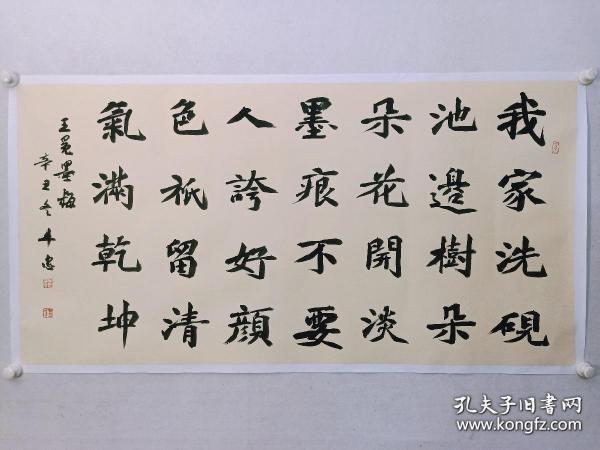 我家洗硯
池邊樹朵
朵花開淡
墨痕不要
人誇好顔
色祇留清
氣滿乾坤
王冕墨梅
辛丑冬
孔夫子旧書网
www.kongfz.com